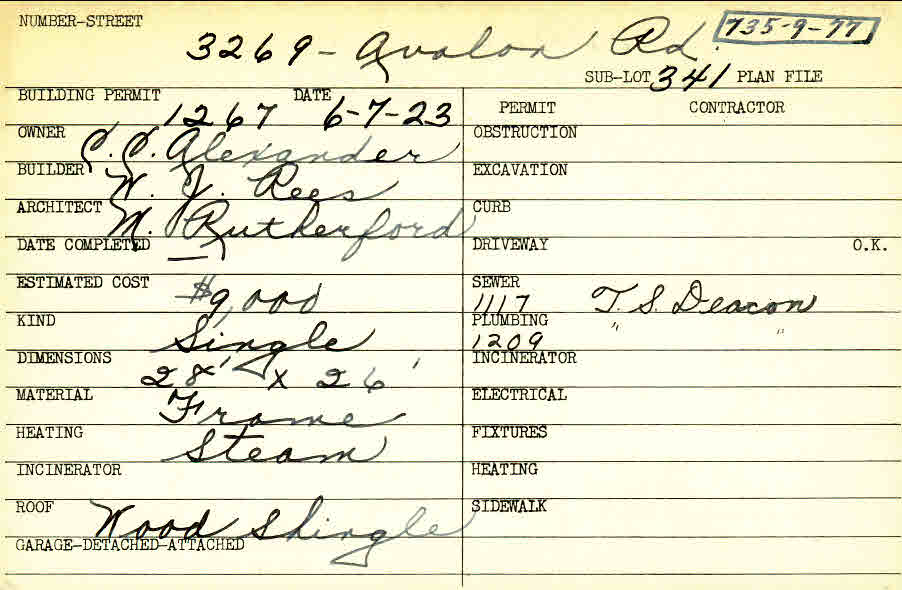 NUMBER-STREET 3269- Avalon Rd. 735-9-77
SUB-LOT 341 PLAN FILE
BUILDING PERMIT 1267 DATE 6-7-23
OWNER C. C. Alexander
BUILDER W. J. Rees
ARCHITECT M. Rutherford
DATE COMPLETED —
ESTIMATED COST $9,000
KIND Single
DIMENSIONS 28' x 26'
MATERIAL Frame
HEATING Steam
INCINERATOR
ROOF Wood Shingle
GARAGE-DETACHED-ATTACHED
PERMIT CONTRACTOR
OBSTRUCTION
EXCAVATION
CURB
DRIVEWAY O.K.
SEWER
1117 T. S. Deacon
PLUMBING
1209 " "
INCINERATOR
ELECTRICAL
FIXTURES
HEATING
SIDEWALK